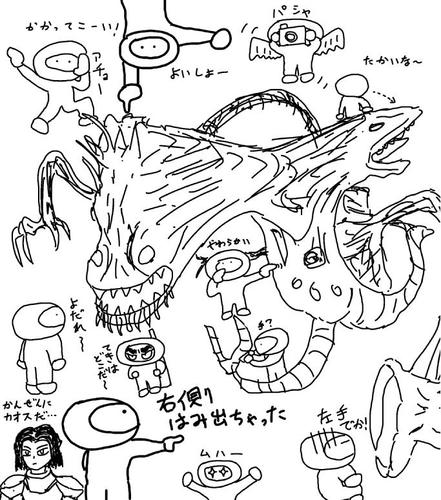 かかってこーい!
アチョー
よいしょー
パシャ
たかいな~
やわらかい
よだれ~
てきは
どこだ~
手?
かんぜんに
カオスだ…
右側り
はみ出ちゃった
ムハー
左手
でか!